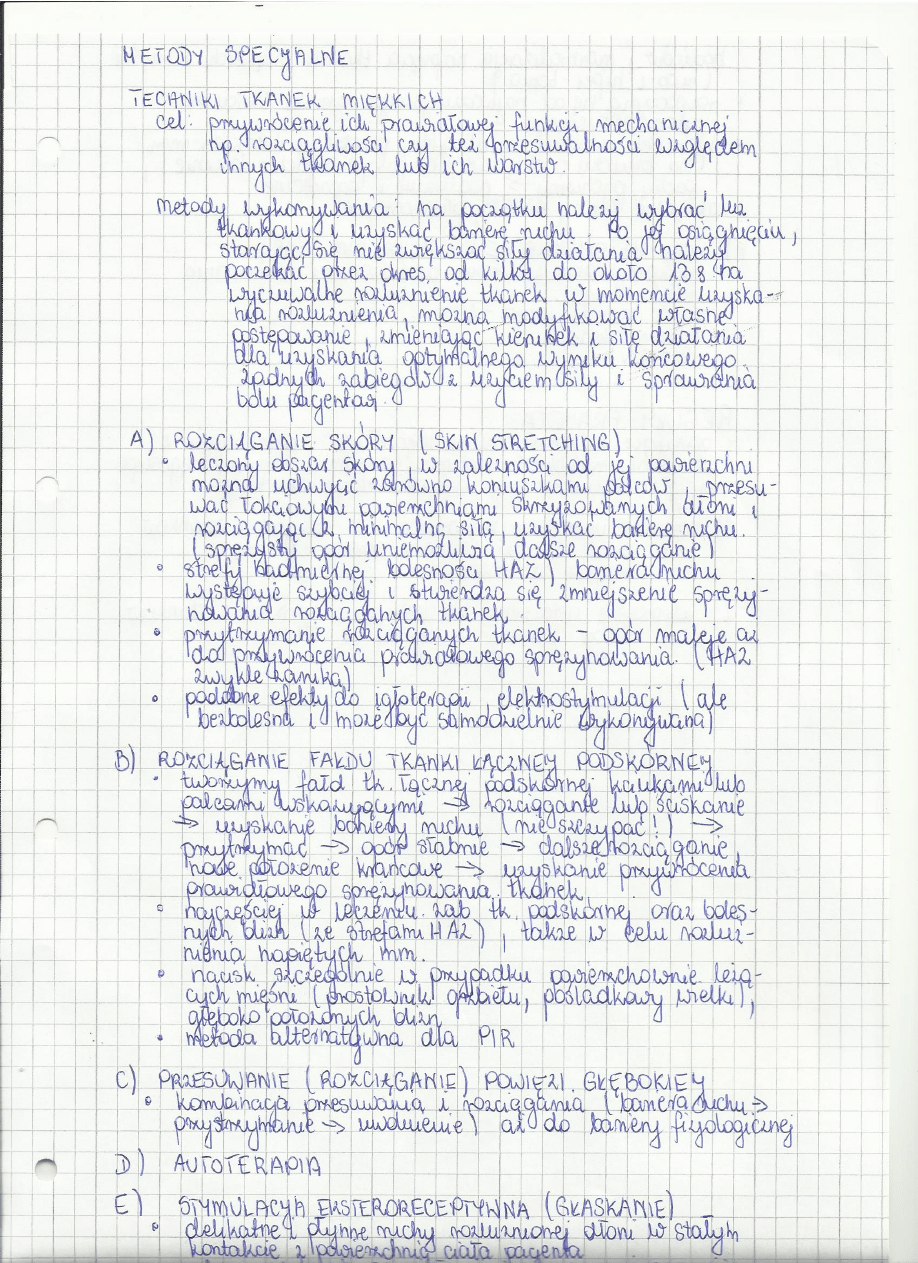 METODY SPECJALNE
TECHNIKI TKANEK MIĘKKICH
cel: przywrócenie ich prawidłowej funkcji mechanicznej
np. rozciągliwości czy też przesuwalności względem
innych tkanek lub ich warstw.
metody wykonywania: na początku należy wybrać luz
tkankowy i uzyskać barierę ruchu. Po jej osiągnięciu,
starając się nie zwiększać siły działania należy
poczekać przez okres od kilku do około 13 s na
wyczuwalne rozluźnienie tkanek w momencie uzyska-
nia rozluźnienia, można modyfikować własne
postępowanie, zmieniając kierunek i siłę działania
dla uzyskania optymalnego wyniku końcowego.
żadnych zabiegów z użyciem siły i sprawiania
bólu pacjentowi.
A) ROZCIĄGANIE SKÓRY (SKIN STRETCHING)
• leczony obszar skóry, w zależności od jej powierzchni
można uchwycić zarówno koniuszkami palców, przesu-
wać łokciowymi powierzchniami skrzyżowanych dłoni i
rozciągając z minimalną siłą, uzyskać barierę ruchu.
(sprężysty opór uniemożliwia dalsze rozciąganie)
• strefy nadmiernej bolesności HAZ) bariera ruchu
występuje szybciej i stwierdza się zmniejszenie spręży-
nowania rozciąganych tkanek.
• przytrzymanie rozciąganych tkanek – opór maleje aż
do przywrócenia prawidłowego sprężynowania. (HAZ
zwykle zanika)
• podobne efekty do igłoterapii, elektrostymulacji (ale
bezbolesna i może być samodzielnie wykonywana)
B) ROZCIĄGANIE FAŁDU TKANKI ŁĄCZNEJ PODSKÓRNEJ
• tworzymy fałd tk. łącznej podskórnej kciukami lub
palcami wskazującymi → rozciąganie lub ściskanie
→ uzyskanie bariery ruchu (nie szczypać!) →
przytrzymać → opór słabnie → dalsze rozciąganie,
nowe położenie krańcowe → uzyskanie przywrócenia
prawidłowego sprężynowania tkanek
• najczęściej w leczeniu zab tk. podskórnej oraz boles-
nych blizn (ze strefami HAZ), także w celu rozluź-
nienia napiętych mm.
• nacisk szczególnie w przypadku powierzchownie leżą-
cych mięśni (prostowniki grzbietu, pośladkowy wielki),
głęboko położonych blizn
• metoda alternatywna dla PIR
C) PRZESUWANIE (ROZCIĄGANIE) POWIĘZI GŁĘBOKIEJ
• kombinacja przesuwania i rozciągania (bariera ruchu →
przytrzymanie → uwolnienie) aż do bariery fizjologicznej
D) AUTOTERAPIA
E) STYMULACJA EKSTERORECEPTYWNA (GŁASKANIE)
• delikatne i płynne ruchy rozluźnionej dłoni w stałym
kontakcie z powierzchnią ciała pacjenta